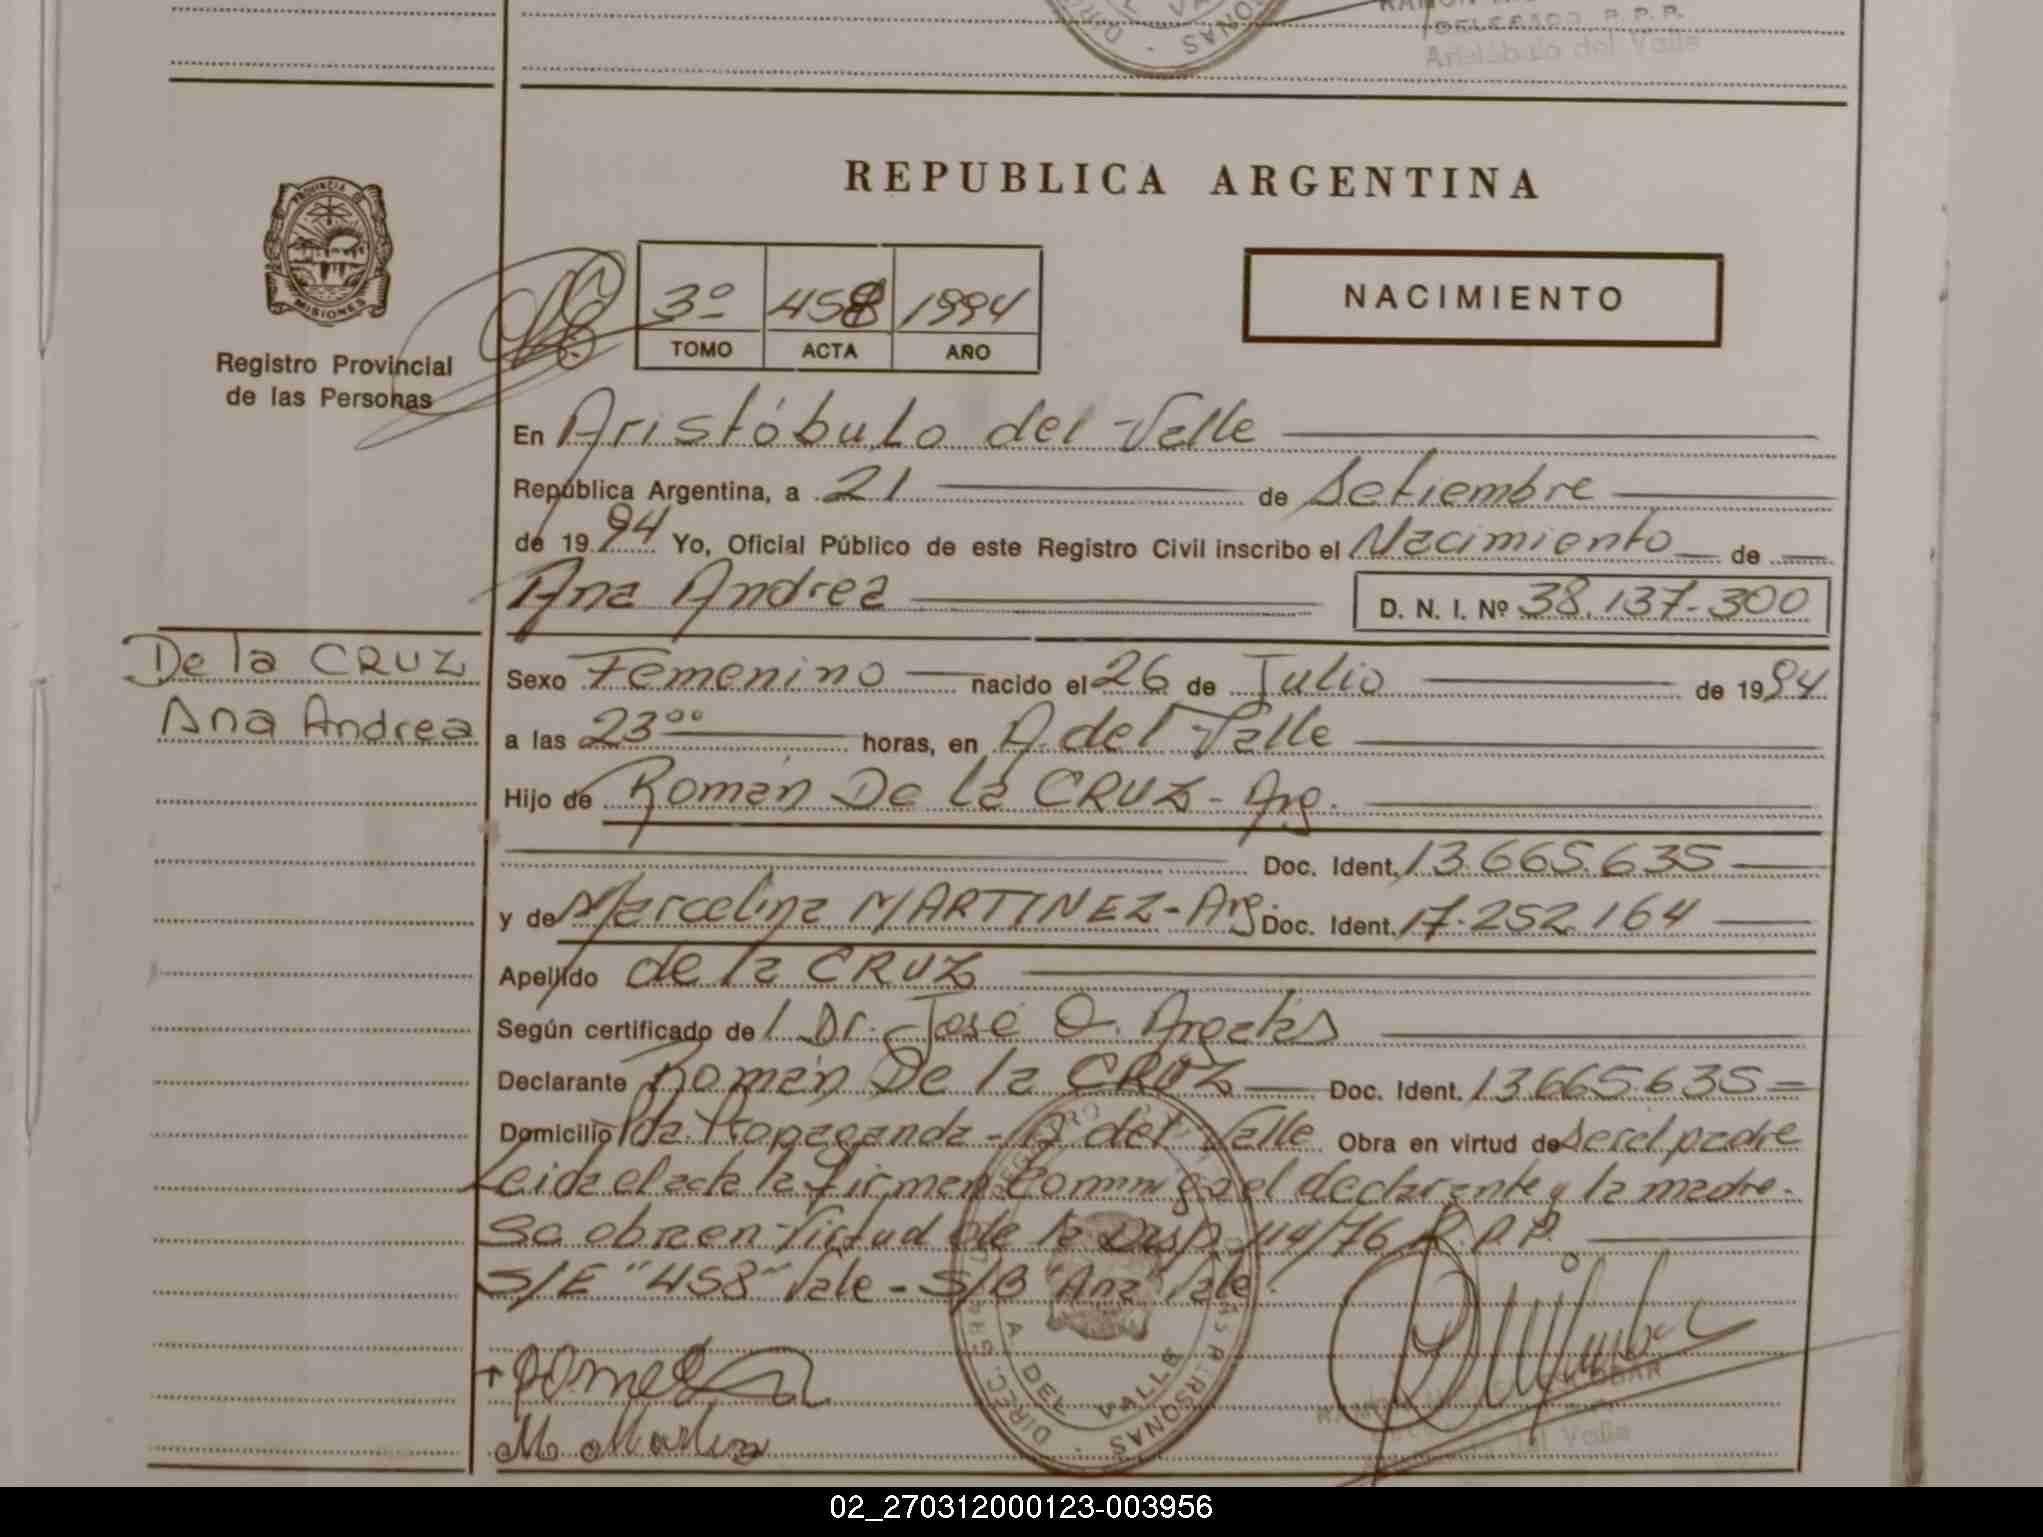 DELEGADO R. P. P.
Aristóbulo del Valle
REPUBLICA ARGENTINA
PROVINCIA DE
MISIONES
Registro Provincial
de las Personas
3º 458 1994
TOMO ACTA AÑO
NACIMIENTO
En Aristóbulo del Valle
República Argentina, a 21 de Setiembre
de 1994 Yo, Oficial Público de este Registro Civil inscribo el Nacimiento de
Ana Andrea D. N. I. Nº 38.137.300
De la CRUZ
Ana Andrea
Sexo Femenino nacido el 26 de Julio de 1994
a las 23⁰⁰ horas, en A. del Valle
Hijo de Román De la CRUZ - Arg.
Doc. Ident. 13.665.635
y de Marcelina MARTINEZ - Arg. Doc. Ident. 17.252.164
Apellido de la CRUZ
Según certificado de l Dr. José O.
Declarante Román De la CRUZ Doc. Ident. 13.665.635
Domicilio Pda. Propaganda - A. del Valle Obra en virtud de ser el padre
Leida el acta la firman conmigo el declarante y la madre.
Se obra en virtud de la Disp. 114/76 R.P.P.
S/E "458" Vale - S/B "Ana" Vale.
A. DEL VALLE
DIREC. PERSONAS
M. Martinez
del Valle
02_270312000123-003956